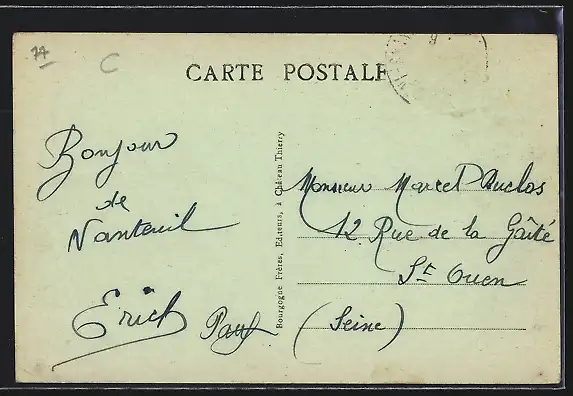 77
C
CARTE POSTALE
Bonjour
de
Nanteuil
Erich
Paul
Bourgogne Frères, Editeurs, à Château Thierry
Monsieur Marcel Duclos
12 Rue de la Gaîté
St Ouen
(Seine)